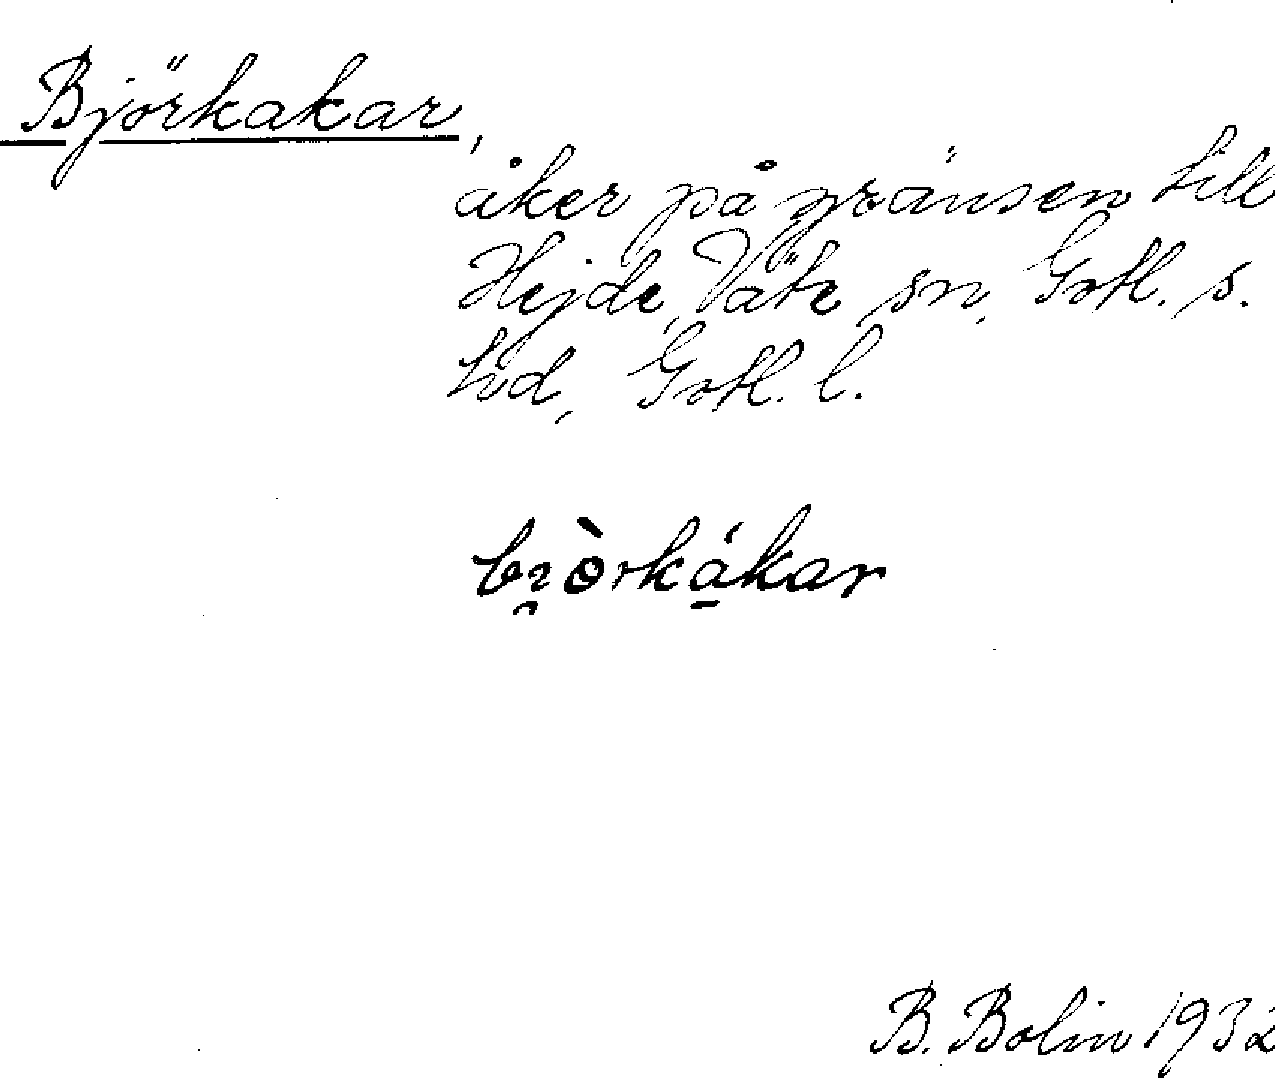 Björkakar,
åker på gränsen till
Hejde, Väte sn, Gotl. s.
hd, Gotl. l.
bi̯òrká̱kar
B. Bolin 1932